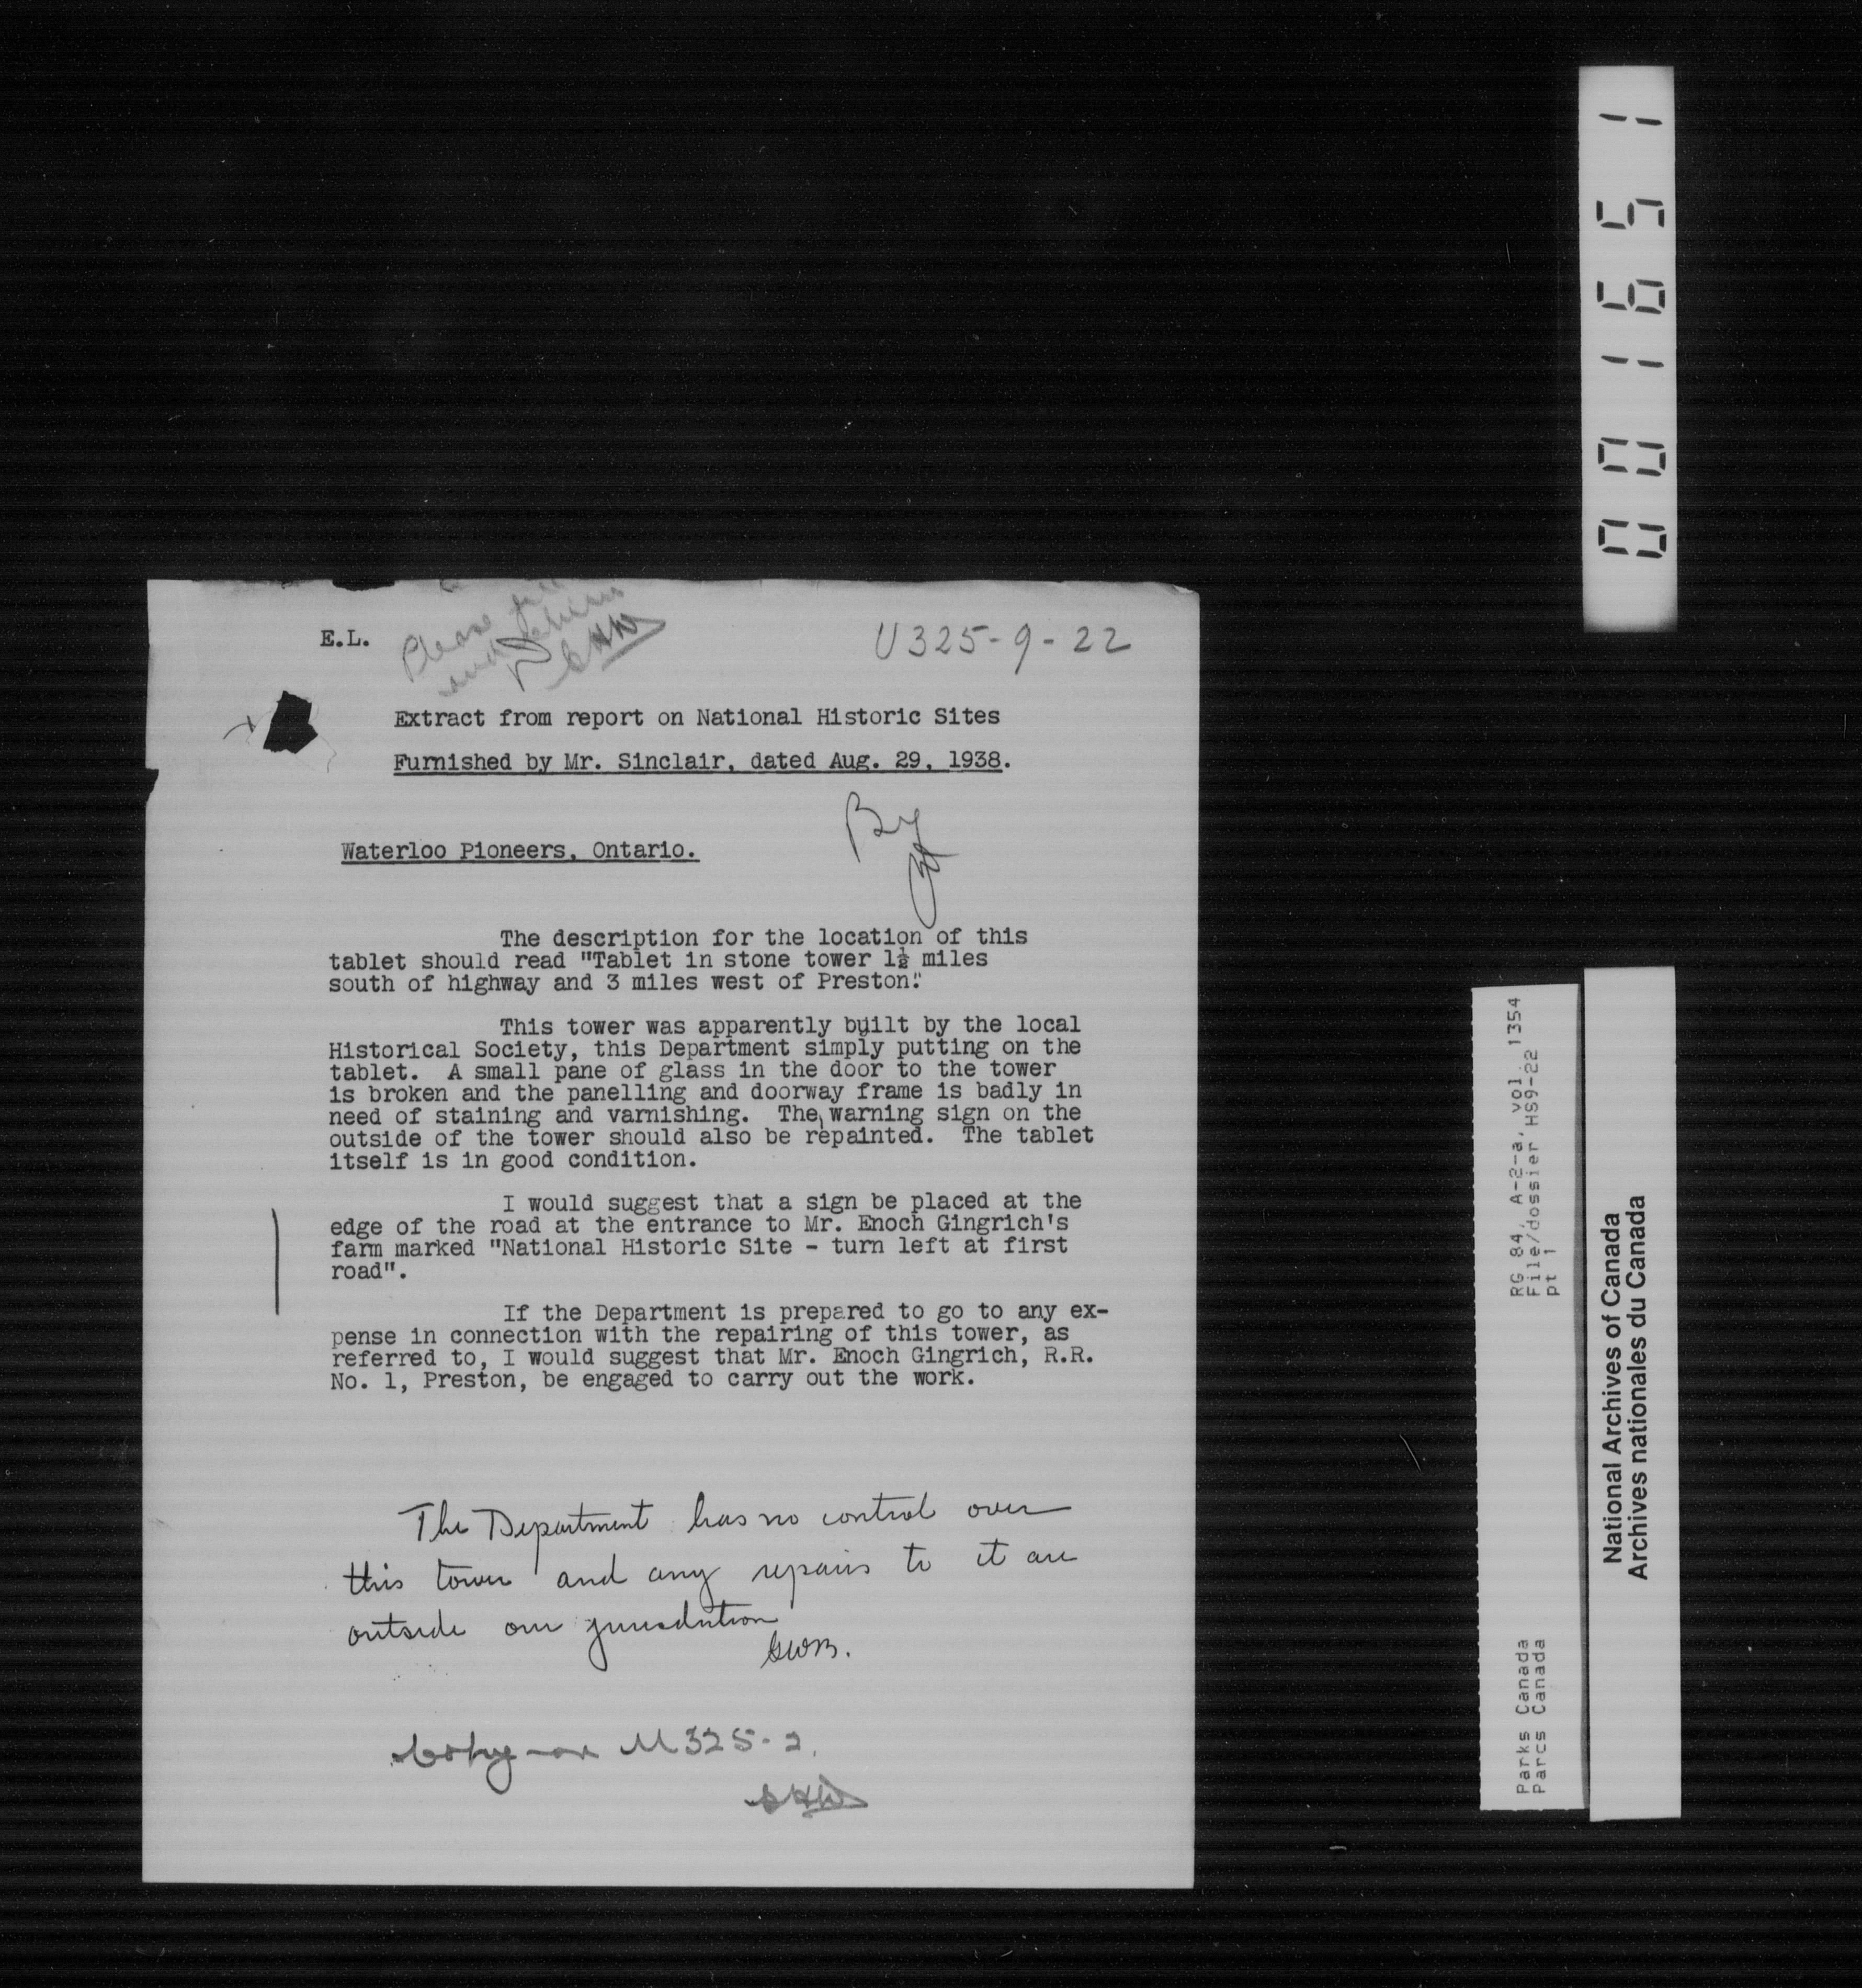 E.L.
Please
and
U325-9-22
Extract from report on National Historic Sites
Furnished by Mr. Sinclair, dated Aug. 29, 1938.
By
Waterloo Pioneers, Ontario.
The description for the location of this
tablet should read "Tablet in stone tower 1½ miles
south of highway and 3 miles west of Preston."
This tower was apparently built by the local
Historical Society, this Department simply putting on the
tablet. A small pane of glass in the door to the tower
is broken and the panelling and doorway frame is badly in
need of staining and varnishing. The warning sign on the
outside of the tower should also be repainted. The tablet
itself is in good condition.
I would suggest that a sign be placed at the
edge of the road at the entrance to Mr. Enoch Gingrich's
farm marked "National Historic Site - turn left at first
road".
If the Department is prepared to go to any ex-
pense in connection with the repairing of this tower, as
referred to, I would suggest that Mr. Enoch Gingrich, R.R.
No. 1, Preston, be engaged to carry out the work.
The Department has no control over
this tower and any repairs to it are
outside our jurisdiction
GWB.
Copy on U325-2.
001651
RG 84, A-2-a, vol. 1354
File/dossier HS9-22
pt 1
Parks Canada
Parcs Canada
National Archives of Canada
Archives nationales du Canada